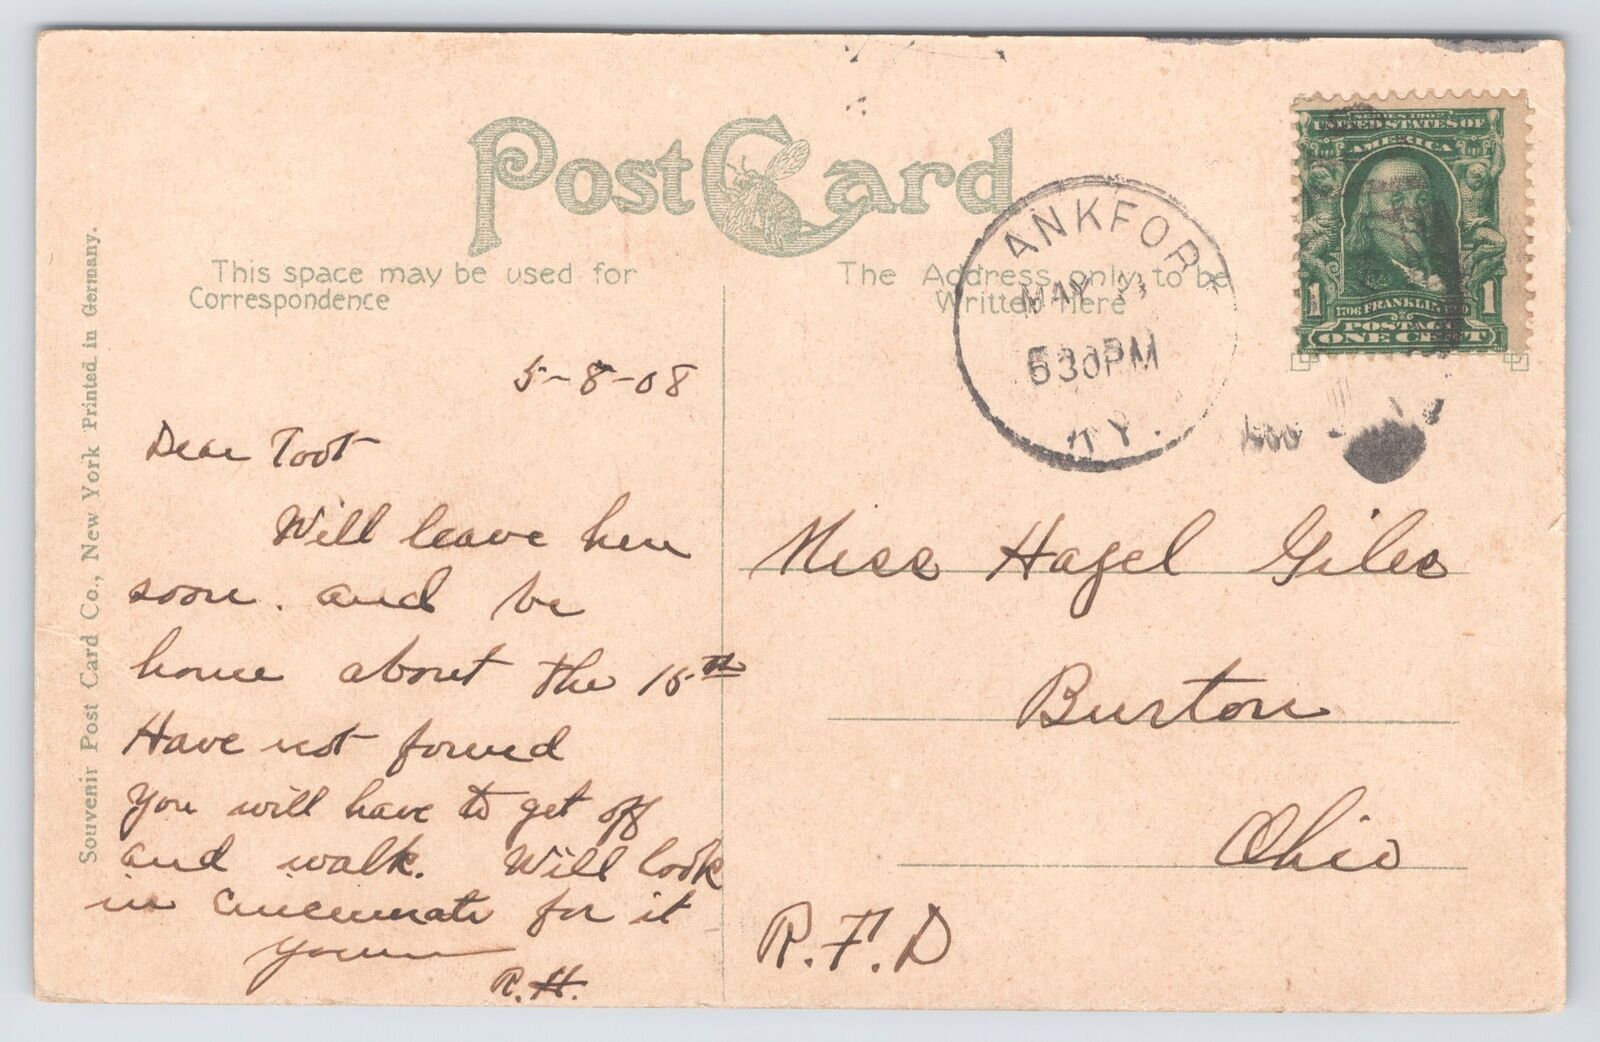 Post Card
This space may be used for
Correspondence
The Address only to be
Written Here
SERIES 1902
UNITED STATES OF
AMERICA
1 1
1706 FRANKLIN
POSTAGE
ONE CENT
ANKFOR
MAY
530PM
KY.
5-8-08
Dear Toot
Will leave here
soon. and be
home about the 15th
Have not found
You will have to get off
and walk. Will look
in Cincinnati for it
Yours
R.H.
Miss Hazel Giles
Burton
Ohio
R.F.D
Souvenir Post Card Co., New York Printed in Germany.